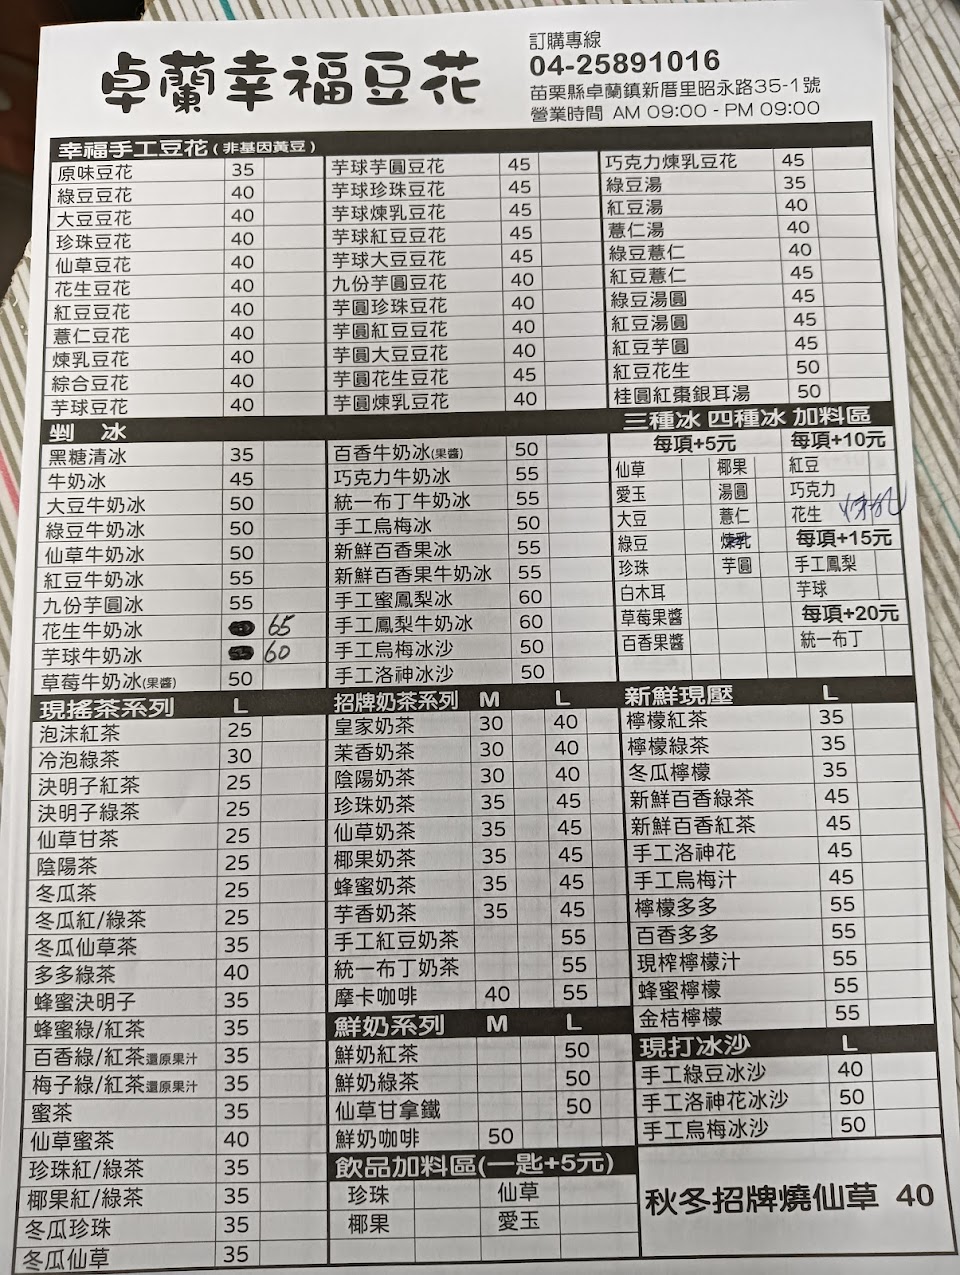 卓蘭幸福豆花
訂購專線
04-25891016
苗栗縣卓蘭鎮新厝里昭永路35-1號
營業時間 AM 09:00 - PM 09:00
幸福手工豆花(非基因黃豆)
原味豆花 35
綠豆豆花 40
大豆豆花 40
珍珠豆花 40
仙草豆花 40
花生豆花 40
紅豆豆花 40
薏仁豆花 40
煉乳豆花 40
綜合豆花 40
芋球豆花 40
芋球芋圓豆花 45
芋球珍珠豆花 45
芋球煉乳豆花 45
芋球紅豆豆花 45
芋球大豆豆花 45
九份芋圓豆花 40
芋圓珍珠豆花 40
芋圓紅豆豆花 40
芋圓大豆豆花 40
芋圓花生豆花 45
芋圓煉乳豆花 40
巧克力煉乳豆花 45
綠豆湯 35
紅豆湯 40
薏仁湯 40
綠豆薏仁 40
紅豆薏仁 45
綠豆湯圓 45
紅豆湯圓 45
紅豆芋圓 45
紅豆花生 50
桂圓紅棗銀耳湯 50
剉 冰
黑糖清冰 35
牛奶冰 45
大豆牛奶冰 50
綠豆牛奶冰 50
仙草牛奶冰 50
紅豆牛奶冰 55
九份芋圓冰 55
花生牛奶冰 65
芋球牛奶冰 60
草莓牛奶冰(果醬) 50
百香牛奶冰(果醬) 50
巧克力牛奶冰 55
統一布丁牛奶冰 55
手工烏梅冰 50
新鮮百香果冰 55
新鮮百香果牛奶冰 55
手工蜜鳳梨冰 60
手工鳳梨牛奶冰 60
手工烏梅冰沙 50
手工洛神冰沙 50
三種冰 四種冰 加料區
每項+5元
仙草 椰果
愛玉 湯圓
大豆 薏仁
綠豆 煉乳
珍珠 芋圓
白木耳
草莓果醬
百香果醬
每項+10元
紅豆
巧克力
花生 煉乳
每項+15元
手工鳳梨
芋球
每項+20元
統一布丁
現搖茶系列 L
泡沫紅茶 25
冷泡綠茶 30
決明子紅茶 25
決明子綠茶 25
仙草甘茶 25
陰陽茶 25
冬瓜茶 25
冬瓜紅/綠茶 25
冬瓜仙草茶 35
多多綠茶 40
蜂蜜決明子 35
蜂蜜綠/紅茶 35
百香綠/紅茶還原果汁 35
梅子綠/紅茶還原果汁 35
蜜茶 35
仙草蜜茶 40
珍珠紅/綠茶 35
椰果紅/綠茶 35
冬瓜珍珠 35
冬瓜仙草 35
招牌奶茶系列 M L
皇家奶茶 30 40
茉香奶茶 30 40
陰陽奶茶 30 40
珍珠奶茶 35 45
仙草奶茶 35 45
椰果奶茶 35 45
蜂蜜奶茶 35 45
芋香奶茶 35 45
手工紅豆奶茶 55
統一布丁奶茶 55
摩卡咖啡 40 55
鮮奶系列 M L
鮮奶紅茶 50
鮮奶綠茶 50
仙草甘拿鐵 50
鮮奶咖啡 50
飲品加料區(一匙+5元)
珍珠 仙草
椰果 愛玉
新鮮現壓 L
檸檬紅茶 35
檸檬綠茶 35
冬瓜檸檬 35
新鮮百香綠茶 45
新鮮百香紅茶 45
手工洛神花 45
手工烏梅汁 45
檸檬多多 55
百香多多 55
現榨檸檬汁 55
蜂蜜檸檬 55
金桔檸檬 55
現打冰沙 L
手工綠豆冰沙 40
手工洛神花冰沙 50
手工烏梅冰沙 50
秋冬招牌燒仙草 40